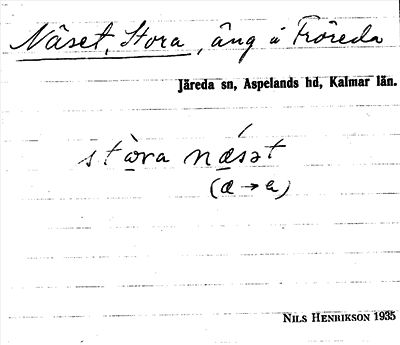 Näset, Stora, äng å Fröreda
Järeda sn, Aspelands hd, Kalmar län.
stòra nǽsət
(æ → a)
NILS HENRIKSON 1935